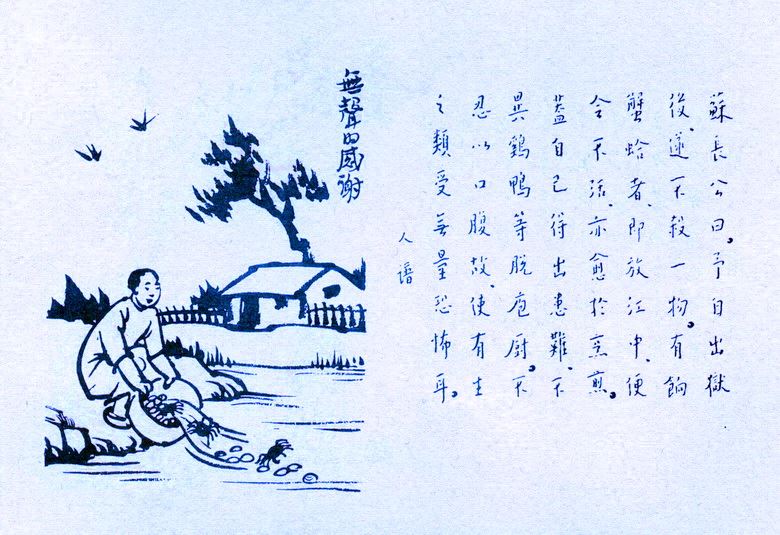 蘇長公曰。予自出獄
後、遂不殺一物。有餉
蟹蛤者、即放江中、便
令不活、亦愈於烹煎。
蓋自己得出患難、不
異鷄鴨等脫庖厨。不
忍以口腹故、使有生
之類受無量恐怖耳。
人譜
無聲的感謝